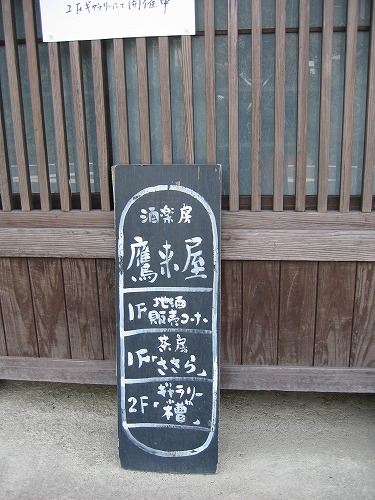 2Fギャラリーにて開催中
酒楽房
鷹来屋
1F 地酒
販売コーナー
1F 茶房
「ささら」
2F ギャラリー
「槽」